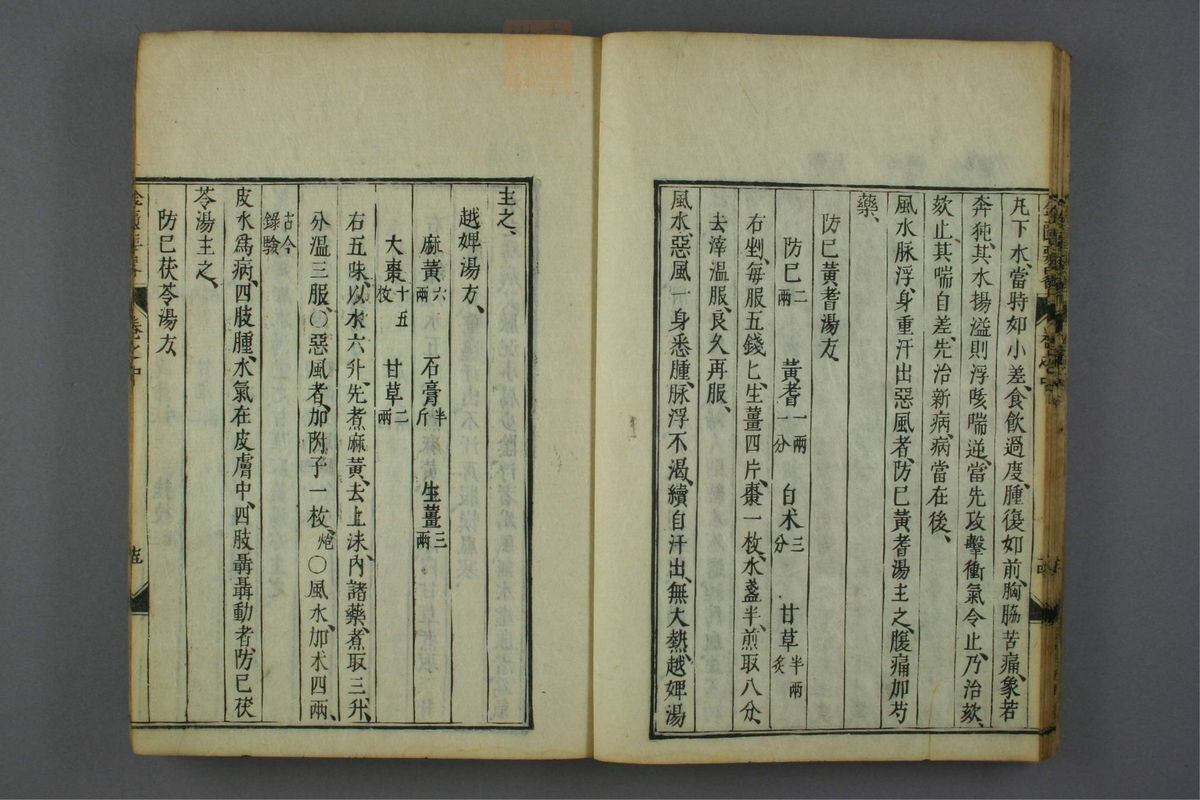 尫下水、當時如小差、食飲過度、腫復如前、胸脇苦痛、象若
奔㹠、其水揚溢、則浮咳喘逆、當先攻擊衝氣令止、乃治欬、
欬止、其喘自差、先治新病、病當在後、
風水、脉浮、身重、汗出惡風者、防巳黃耆湯主之、腹痛加芍
藥、
防巳黃耆湯方、
防巳二兩 黃耆一兩一分 白术三分 甘草半兩炙
右剉、每服五錢匕、生薑四片、棗一枚、水盞半、煎取八分、
去滓溫服、良久再服、
風水、惡風、一身悉腫、脉浮不渴、續自汗出、無大熱、越婢湯
主之、
越婢湯方、
麻黃六兩 石膏半斤 生薑三兩
大棗十五枚 甘草二兩
右五味、以水六升、先煮麻黃、去上沫、內諸藥、煮取三升、
分溫三服、〇惡風者、加附子一枚、炮〇風水加术四兩、
古今錄驗
皮水爲病、四肢腫、水氣在皮膚中、四肢聶聶動者、防巳茯
苓湯主之、
防巳茯苓湯方、